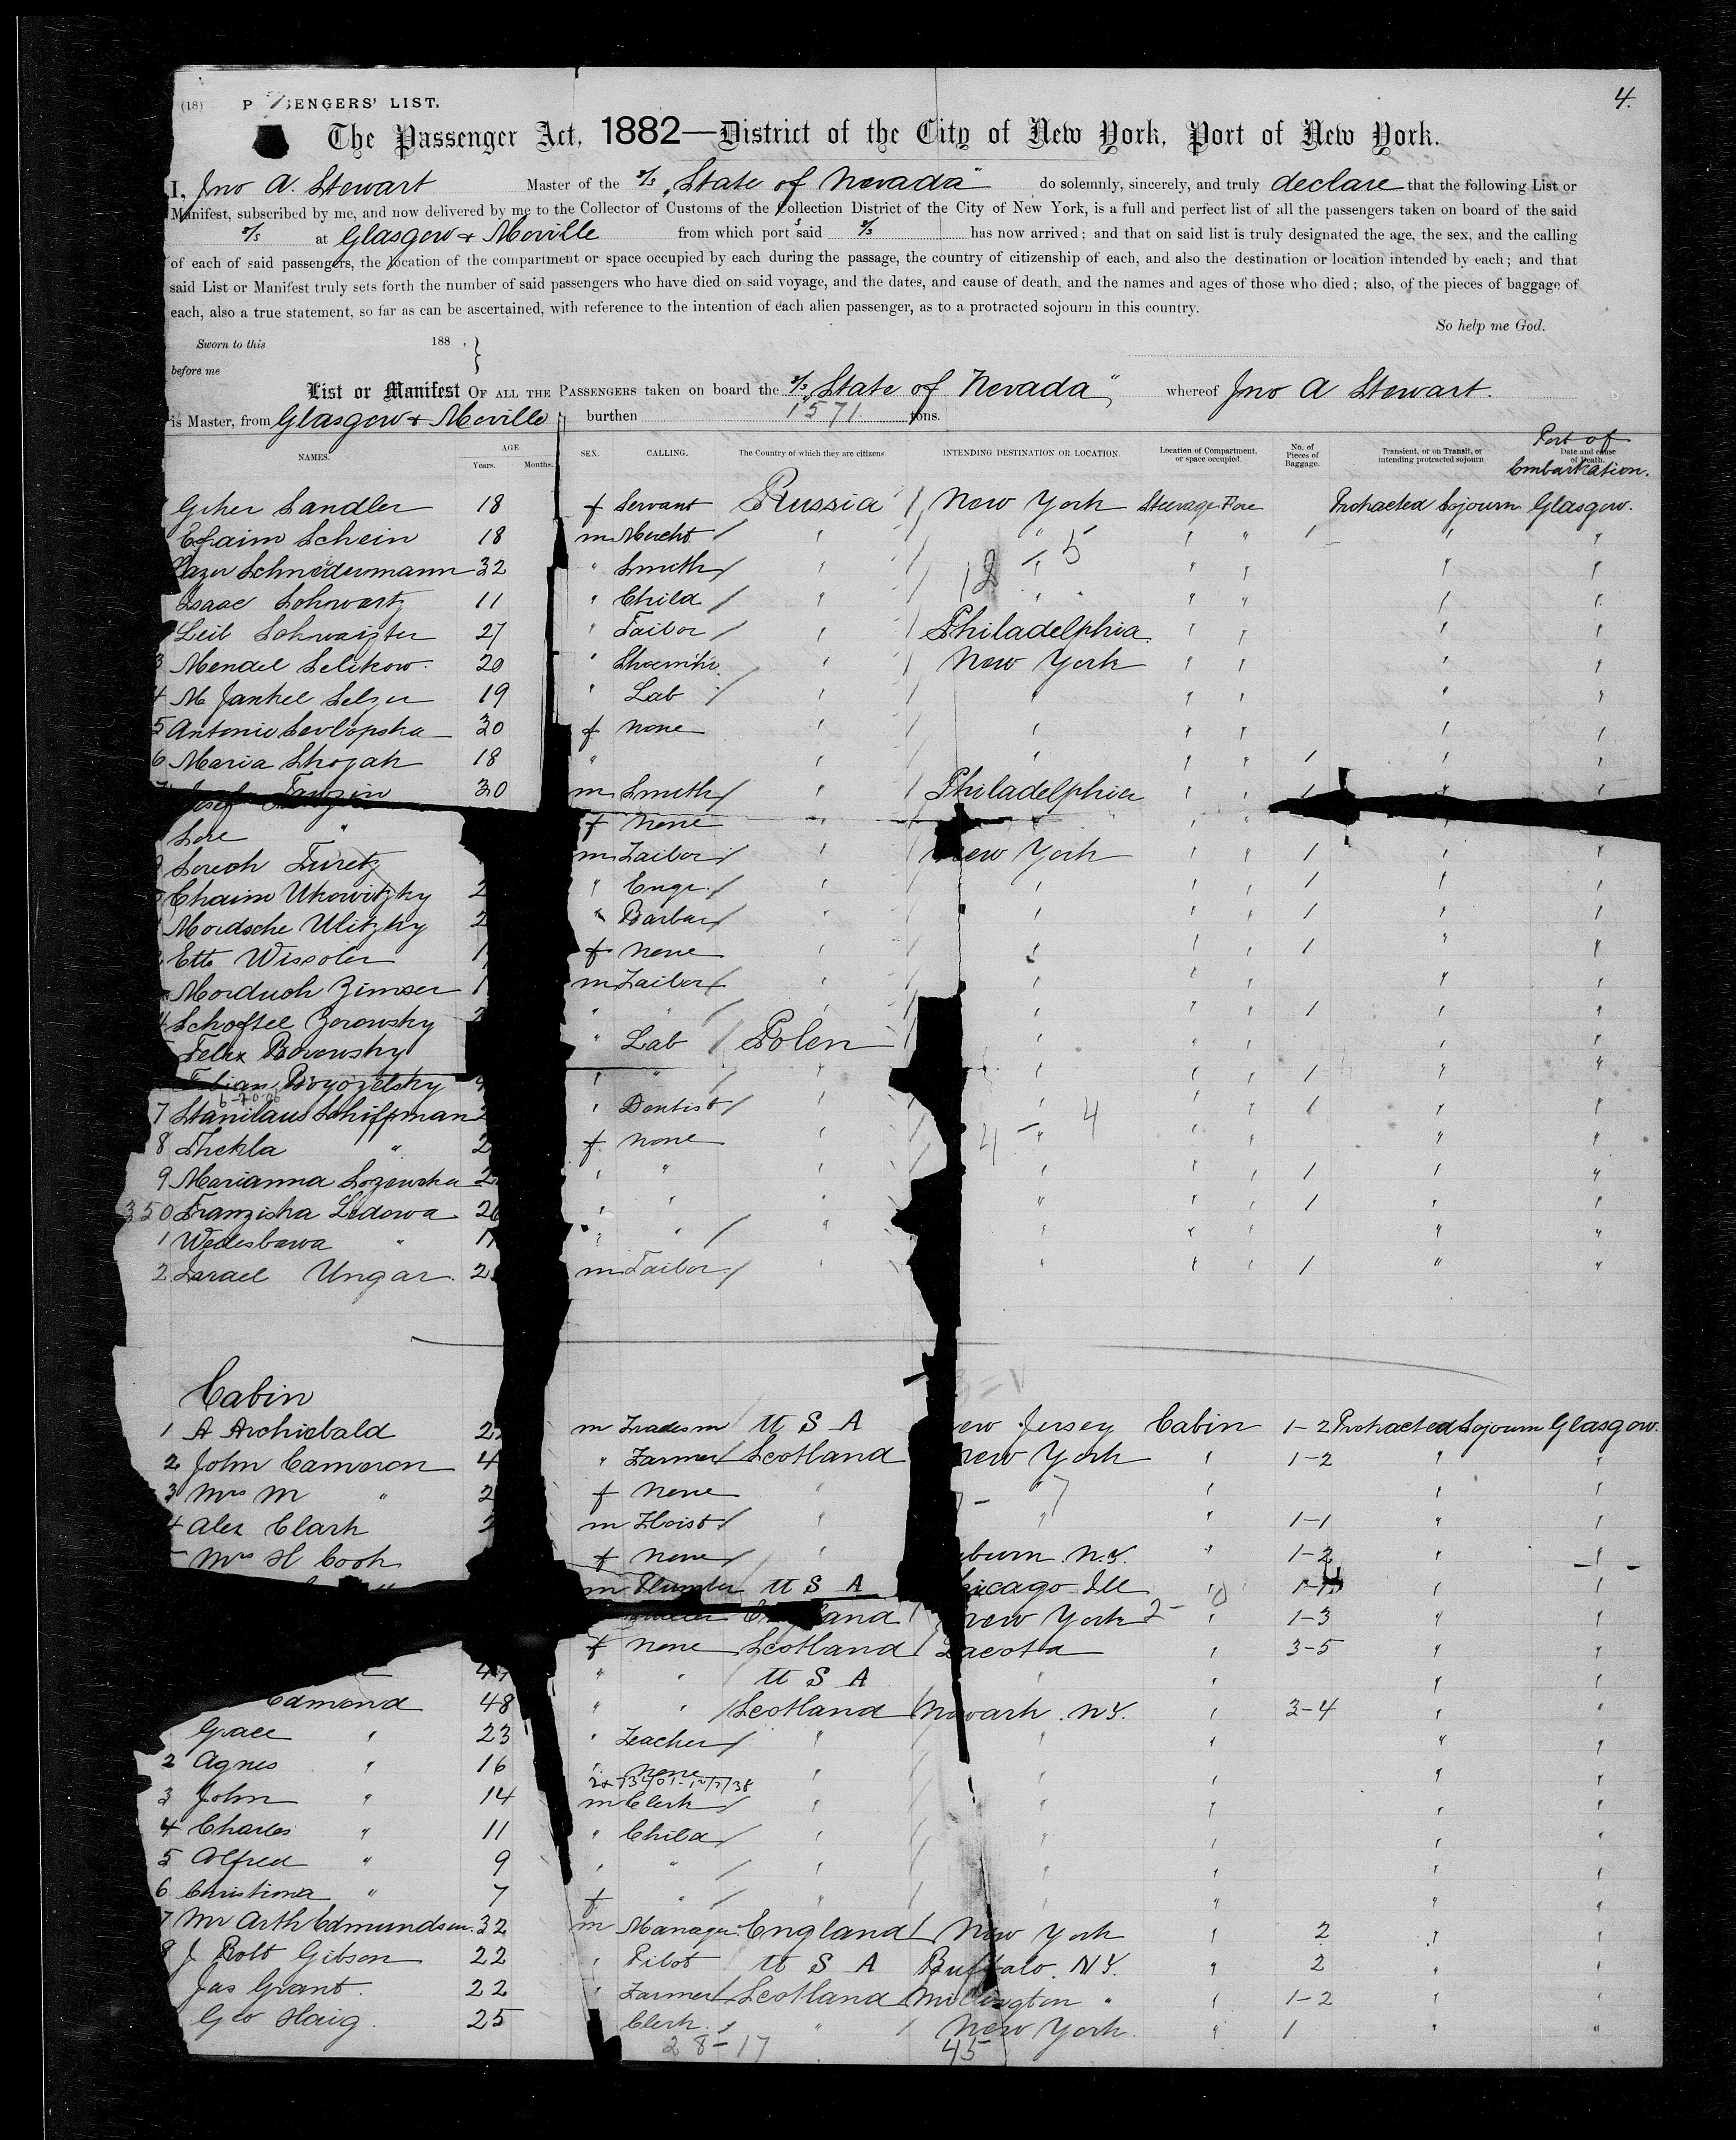 (18) P SENGERS' LIST. 4.
The Passenger Act, 1882—District of the City of New York, Port of New York.
I, Jno A. Stewart Master of the s/s „State of Nevada" do solemnly, sincerely, and truly declare that the following List or
Manifest, subscribed by me, and now delivered by me to the Collector of Customs of the Collection District of the City of New York, is a full and perfect list of all the passengers taken on board of the said
s/s at Glasgow & Moville from which port s said s/s has now arrived; and that on said list is truly designated the age, the sex, and the calling
of each of said passengers, the location of the compartment or space occupied by each during the passage, the country of citizenship of each, and also the destination or location intended by each; and that
said List or Manifest truly sets forth the number of said passengers who have died on said voyage, and the dates, and cause of death, and the names and ages of those who died; also, of the pieces of baggage of
each, also a true statement, so far as can be ascertained, with reference to the intention of each alien passenger, as to a protracted sojourn in this country.
So help me God.
Sworn to this 188 ,
before me
List or Manifest OF ALL THE PASSENGERS taken on board the s/s „State of Nevada" whereof Jno A Stewart.
is Master, from Glasgow & Moville burthen 1571 tons.
NAMES. AGE Years. Months. SEX. CALLING. The Country of which they are citizens INTENDING DESTINATION OR LOCATION. Location of Compartment, or space occupied. No. of Pieces of Baggage. Transient, or on Transit, or intending protracted sojourn Date and cause of Death. Port of Embarkation.
Sandler 18 f Servant Russia / New York Steerage Fore Protracted Sojourn Glasgow.
Efaim Schein 18 m Mercht / " / " " " 1 " "
Schniedermann 32 " Smith / " / " " " " "
Isaac Schwartz 11 " Child / " / " " " " "
12 - 5
Leib Schwaigter 27 " Tailor / " / Philadelphia " " " "
3 Mendel Selikow 20 " " / New York " " " "
4 M Jankel Selzer 19 " Lab / " / " " " " "
5 Antonie 30 f none " / " " " " "
6 Maria 18 " " / " " " 1 " "
30 m Smith / " / Philadelphia " " 1 " "
" f None " / " " "
Turetz m Tailor / " / ew York " " 1 " "
Chaim Ukowitzky 2 " Engr. / " " " " 1 " "
Mordsche Ulitzky 2 " Barber / " " " " 1 " "
Etta 1 f none " " " " 1 " "
Morduch Zimser 1 m Tailor / " " " " " "
4 Zorowsky 2 " " / " " " " 1 " "
Felix Borowsky " Lab / Polen / " " " " "
" " / " " " " 1 " "
6-20-06
7 Stanilaus Schiffman 2 " Dentist / " " " " 1 " "
8 Thekla " 2 f none " / " " " " "
4 - 4
9 Marianna 2 " " " " " " 1 " "
350 Franziska Ledowa 26 " " " " " " 1 " "
1 " 1 " " / " " " " " "
2 Israel Ungar. 2 m Tailor / " " " " 1 " "
Cabin
1 A Archiebald 2 m Tradesm / U S A ew Jersey Cabin 1-2 Protracted Sojourn Glasgow.
2 John Cameron 4 " Farmer / Scotland New York " 1-2 " "
3 Mrs M " 2 f None " " " " "
4 Alex Clark 2 m / " " " 1-1 " "
Mrs H Cook f None / " burn N.Y. " 1-2 " "
m Plumber U S A hicago Ill " " "
England / New York 2- " 1-3 " "
f None Scotland / Dacota " 3-5 " "
" " U S A " " " "
Edmond 48 " " / Scotland / Newark . N.Y. " 3-4 " "
Grace " 23 " Teacher / " / " " " "
2 Agnes " 16 " None " / " " " "
3 John " 14 m Clerk / " / " " " "
4 Charles " 11 " Child / " / " " " "
5 Alfred " 9 " " / " / " " " "
6 Christina " 7 f " / " / " " " "
7 Mr Arth Edmundson. 32 m Manager England / New York " 2 " "
8 J Robt Gibson 22 " Pilot U S A Buffalo. N.Y. " 2 " "
Jas Grant. 22 " Farmer / Scotland / Millington " " 1-2 " "
Geo Haig. 25 Clerk / " / New York. " 1 " "
28-17 45